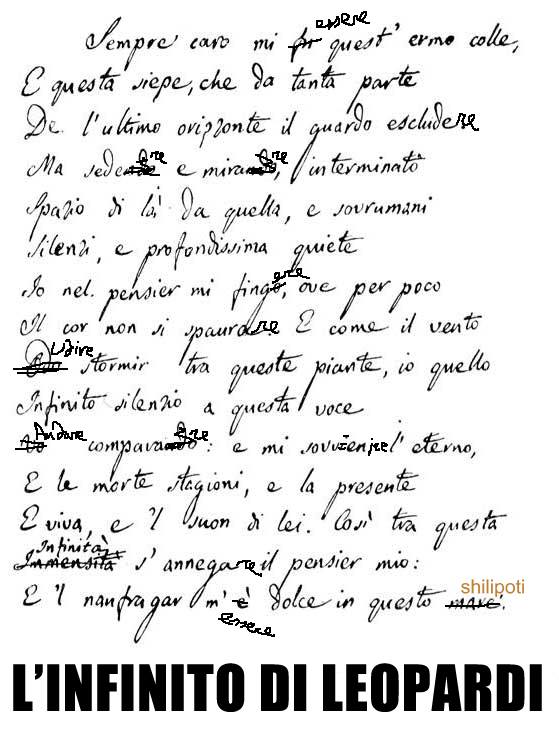 essere
Sempre caro mi fu quest' ermo colle,
E questa siepe, che da tanta parte
De l'ultimo orizzonte il guardo escludere
Ma sedere e mirare, interminato
Spazio di là da quella, e sovrumani
Silenzi, e profondissima quiete
Io nel pensier mi fingere, ove per poco
Il cor non si spaurare E come il vento
Udire stormir tra queste piante, io quello
Infinito silenzio a questa voce
Andare comparare: e mi sovvienire l'eterno,
E le morte stagioni, e la presente
E viva, e 'l suon di lei. Così tra questa
Infinità
Immensità s'annegare il pensier mio:
shilipoti
E 'l naufragar m' è dolce in questo mare.
essere
L'INFINITO DI LEOPARDI